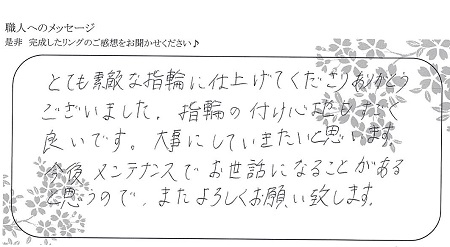 職人へのメッセージ
是非 完成したリングのご感想をお聞かせください♪
とても素敵な指輪に仕上げてくださりありがとう
ございました。指輪の付け心地もすごく
良いです。大事にしていきたいと思います。
今後メンテナンスでお世話になることがある
と思うので、またよろしくお願い致します。